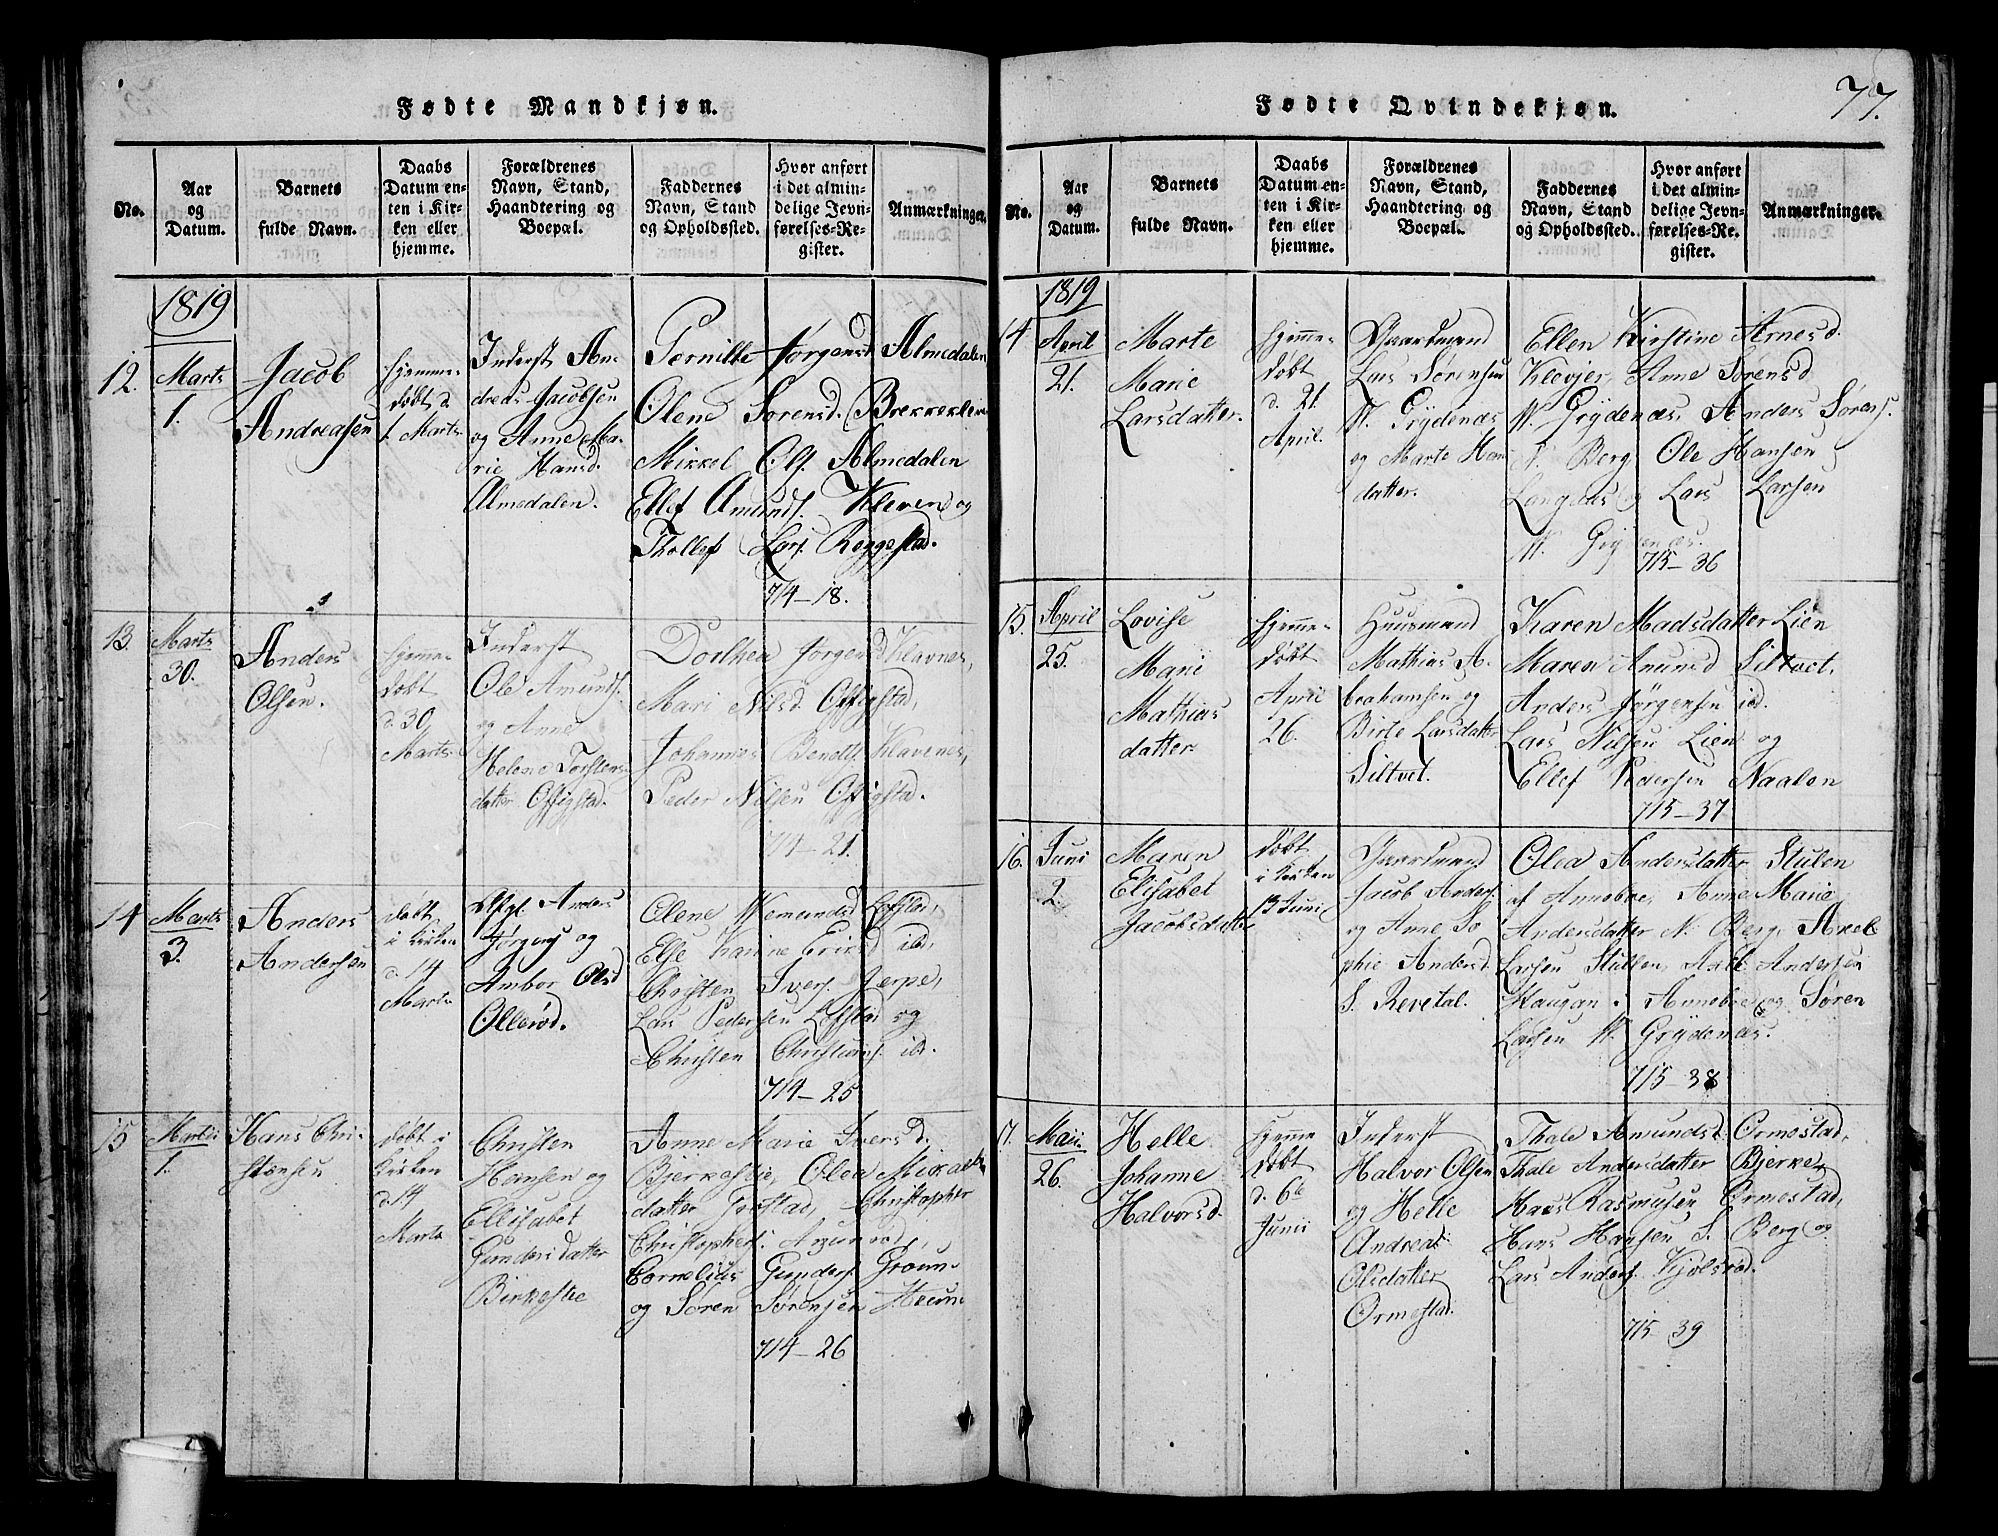 77.
Fødte Mandkjøn.
No.
Aar
og
Datum.
Barnets
fulde Navn.
Daabs
Datum en-
ten i Kir-
ken eller
hjemme.
Forældrenes
Navn, Stand,
Haandtering og
Boepæl.
Faddernes
Navn, Stand
og Opholdssted.
Hvor anført
i det almin-
delige Jevn-
førelses-Re-
gister.
Anmærkninger.
1819
12.
Marts
1.
Jacob
Andreasen
hjemme-
døbt d.
1. Marts
Inderst An-
dreas Jacobsen
og Anne Ma-
rie Hansd.
Almedalen.
Pernille Jørgensd Almedalen
Olene Sørensd. Brekkeklein
Mikkel Ols. Almedalen
Ellef Amunds. Kleven og
Thollef Lars. Reggestad.
714-18.
13.
Marts
30.
Anders
Olsen.
hjemme-
døbt
d. 30
Marts
Inderst
Ole Amunds.
og Anne
Helene Torstens-
datter Offigstad.
Dorthea Jørgensd Klavnes,
Mari Nilsd. Offigstad,
Johannes Bendts. Klavenes,
Peder Nilsen Offigstad.
714-21.
14
Marts
3.
Anders
Andersen
døbt
i Kirken
d. 14
Marts
Afgl. Anders
Jørgens og
Ambor Olsd
Ollerød.
Olene Wemundsd Lofstad,
Else Karine Eriksd ibd,
Christen Ivers. Jerpe,
Lars Pedersen Lofstad og
Christen Christians. ibd.
714-25
15
Martii
1.
Hans Chri-
stensen
døbt i
Kirken
d. 14
Marts
Christen
Hansen og
Ellisabet
Gundersdatter
Birkestie
Anne Marie Iversd.
Bjerkestie, Olea Mikaels
datter Grostad, Christopher
Christophers.
Cornelius Gunders.
og Søren Sørensen
714-26
Fødte Qvindekjøn.
No.
Aar
og
Datum.
Barnets
fulde Navn.
Daabs
Datum en-
ten i Kir-
ken eller
hjemme.
Forældrenes
Navn, Stand,
Haandtering og
Boepæl.
Faddernes
Navn, Stand
og Opholdssted.
Hvor anført
i det almin-
delige Jevn-
førelses-Re-
gister.
Anmærkninger.
1819
14
April
21.
Marte
Marie
Larsdatter.
hjemme-
døbt
d. 21.
April.
Gaardmand
Lars Sørensen
W. Grydenæs
og Marte Hans
datter.
Ellen Kirstine Arnesd.
Klevjer, Anne Sørensd
W. Grydenæs, Anders Sørens.
N. Berg Ole Hansen
Langaas og Lars Larsen
W. Grydenæs.
715-36
15.
April
25.
Lovise
Marie
Mathias
datter
hjemme-
døbt
April
26.
Huusmand
Mathias A-
brahamsen og
Birte Larsdatter
Siltvet.
Karen Madsdatter Lien
Maren Amunsd Siltvet.
Anders Jørgensen ibd.
Lars Nilsen Lien og
Ellef Pedersen Naalen
715-37
16.
Juni
2.
Maren
Elisabet
Jacobsdatter
døbt
i Kirken
13 Juni
Gaardmand
Jacob Anders.
og Anne So
phie Andersd.
S. Revetal.
Olea Andersdatter Stulen
af Anneboe, Anne Marie
Andersdatter N. Berg, Axel
Larsen Stulen, Axel Andersen
Haugan i Anneboe og Søren
Larsen W. Grydenæs.
715-38
17.
Maii
26.
Helle
Johanne
Halvorsd.
hjemme
døbt
d. 6te
Junii
Inderst
Halvor Olsen
og Helle
Andrea
Olsdatter
Ormestad.
Thale Amundsd. Ormestad,
Thale Andersdatter Bjerke,
Hans Rasmusen Ormestad,
Hans Hansen S. Berg og
Lars Anders. Kjølsrød.
715-39